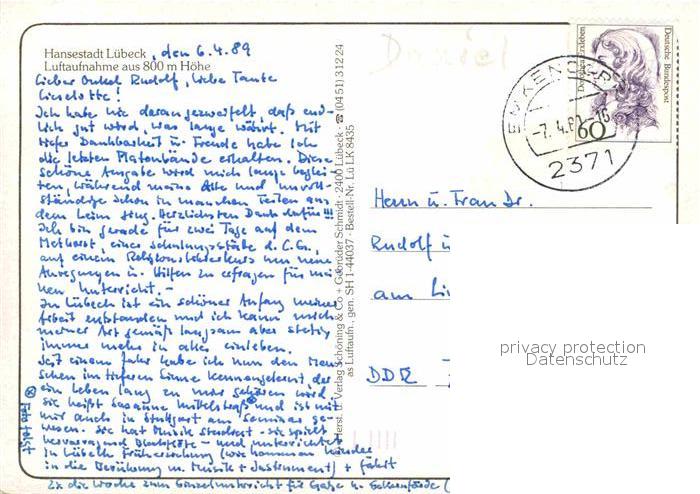 Hansestadt Lübeck, den 6.4.89
Luftaufnahme aus 800 m Höhe
Lieber Onkel Rudolf, liebe Tante
Lieselotte!
Ich habe nie daran gezweifelt, daß end-
lich gut wird, was lange währt. Mit
tiefer Dankbarkeit u. Freude habe ich
die letzten Platonbände erhalten. Diese
schöne Ausgabe wird mich lange beglei-
ten, während meine alte und unvoll-
ständige schon in manchen Teilen aus
dem Leim ging. Herzlichsten Dank dafür!!!
Ich bin gerade für zwei Tage auf dem
Methorst, einer Schulungsstätte d. C.G.,
auf einem Religionslehrerkurs um neue
Anregungen u. Hilfen zu erfragen für mei-
nen Unterricht. -
In Lübeck ist ein schöner Anfang meiner
Arbeit entstanden und ich kann mich
meiner Art gemäß langsam aber stetig
immer mehr in alles einleben.
Seit einem Jahr habe ich nun den Men-
schen im tieferen Sinne kennengelernt, der
ein Leben lang zu mir gehören wird
sie heißt Susanne Mittelstraß und ist mit
mir auch in Stuttgart am Seminar ge-
wesen. Sie hat Musik studiert - sie spielt
hervorragend Blockflöte - und unterrichtet
in Lübeck Früherziehung (wie kommen Kinder
in die Berührung m. Musik + Instrument) + fährt
2x die Woche zum Einzelunterricht für Gabe n. Eckernförde (
Foto folgt
Herst. u. Verlag Schöning & Co + Gebrüder Schmidt · 2400 Lübeck · ☎ (0451) 31224
as Luftaufn., gen. SH 1-44037 · Bestell-Nr. Lü LK 8435
Daniel
Deutsche Bundespost
Dorothea Erxleben
60
EMKENDORF
-7.4.89-15
2371
Herrn u. Frau Dr.
Rudolf u
am Li
DDR
privacy protection
Datenschutz